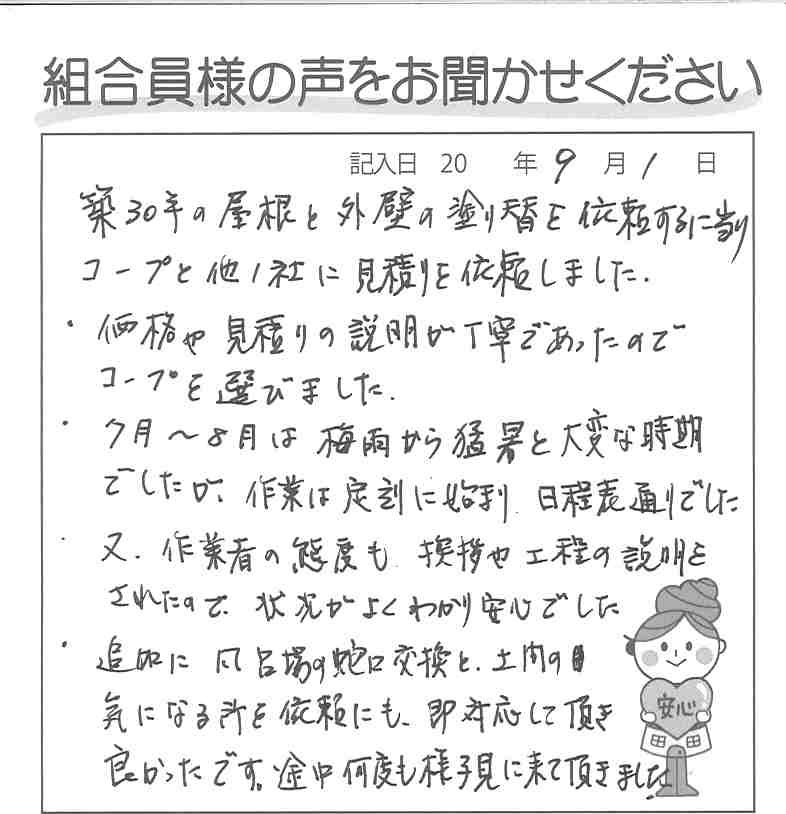 組合員様の声をお聞かせください
記入日 20 年 9 月 1 日
築30年の屋根と外壁の塗り替を依頼するに当り
コープと他1社に見積りを依頼しました.
・価格や見積りの説明が丁寧であったので
コープを選びました.
・7月～8月は梅雨から猛暑と大変な時期
でしたが、作業は定刻に始まり 日程表通りでした
・又、作業者の態度も 挨拶や工程の説明を
されたので、状況がよくわかり安心でした
・追加に 風呂場の蛇口交換と、土間の
気になる所を依頼にも、即対応して頂き
良かったです。途中何度も様子見に来て頂きました
安心